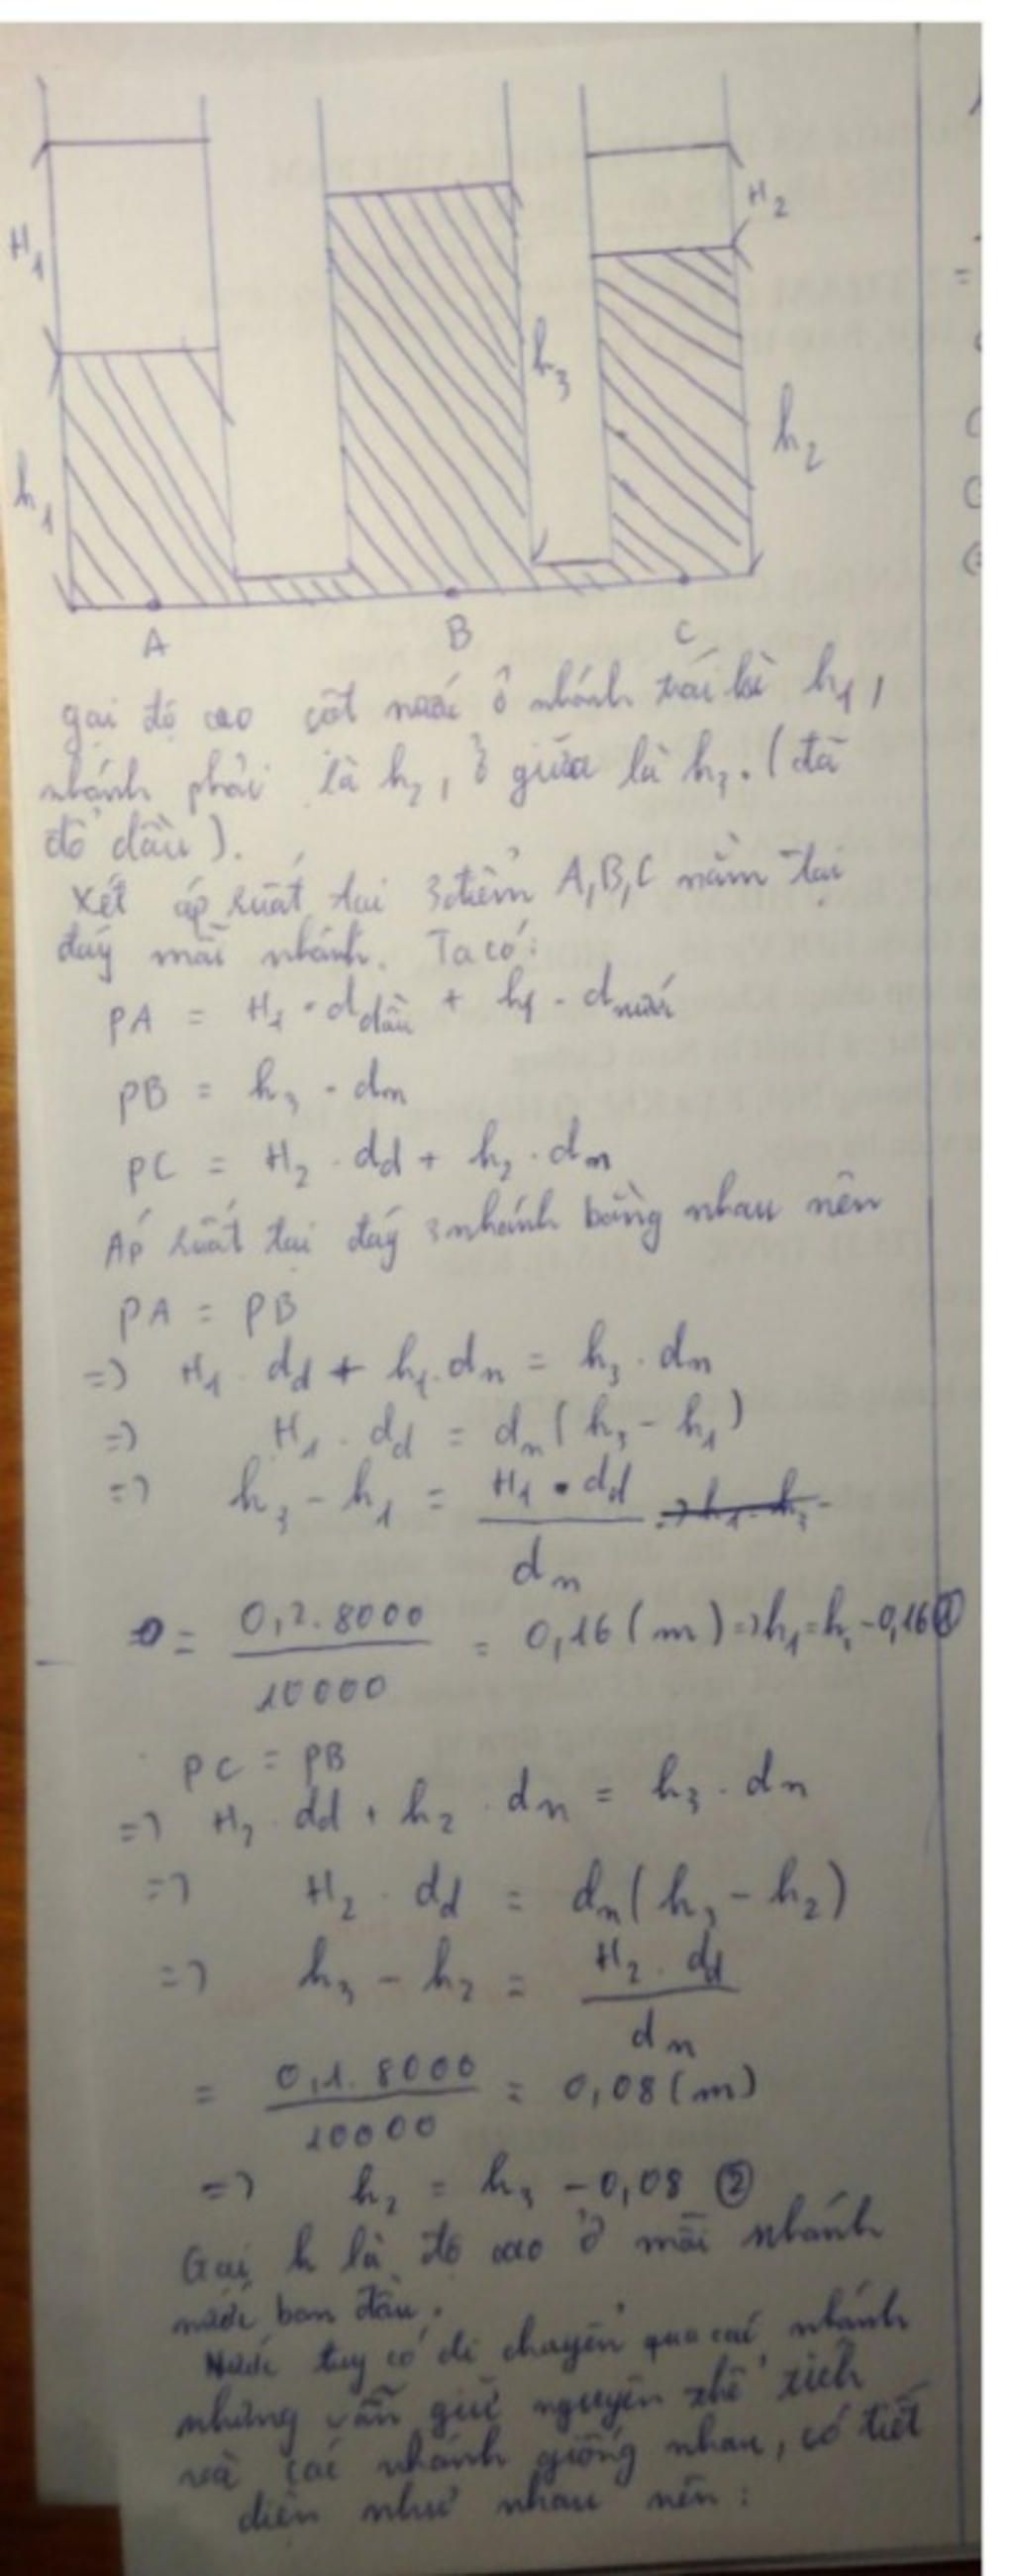 H₁
h₁
h₃
H₂
h₂
A B C
gọi độ cao cột nước ở nhánh trái là h₁,
nhánh phải là h₂, ở giữa là h₃. (đã
đổ dầu).
Xét áp suất tại 3 điểm A,B,C nằm tại
đáy mỗi nhánh. Ta có:
PA = H₁ . d dầu + h₁ . d nước
PB = h₃ . dn
PC = H₂ . dd + h₂ . dn
Áp suất tại đáy 3 nhánh bằng nhau nên
PA = PB
=> H₁ . dd + h₁ . dn = h₃ . dn
=> H₁ . dd = dn (h₃ - h₁)
=> h₃ - h₁ = H₁ . dd / dn
= 0,2.8000 / 10000 = 0,16 (m) => h₁ = h₃ - 0,16 ①
PC = PB
=> H₂ . dd + h₂ . dn = h₃ . dn
=> H₂ . dd = dn (h₃ - h₂)
=> h₃ - h₂ = H₂ . dd / dn
= 0,1.8000 / 10000 = 0,08 (m)
=> h₂ = h₃ - 0,08 ②
Gọi h là độ cao ở mỗi nhánh
nước ban đầu.
Nước tuy có di chuyển qua các nhánh
nhưng vẫn giữ nguyên thể tích
và các nhánh giống nhau, có tiết
diện như nhau nên: